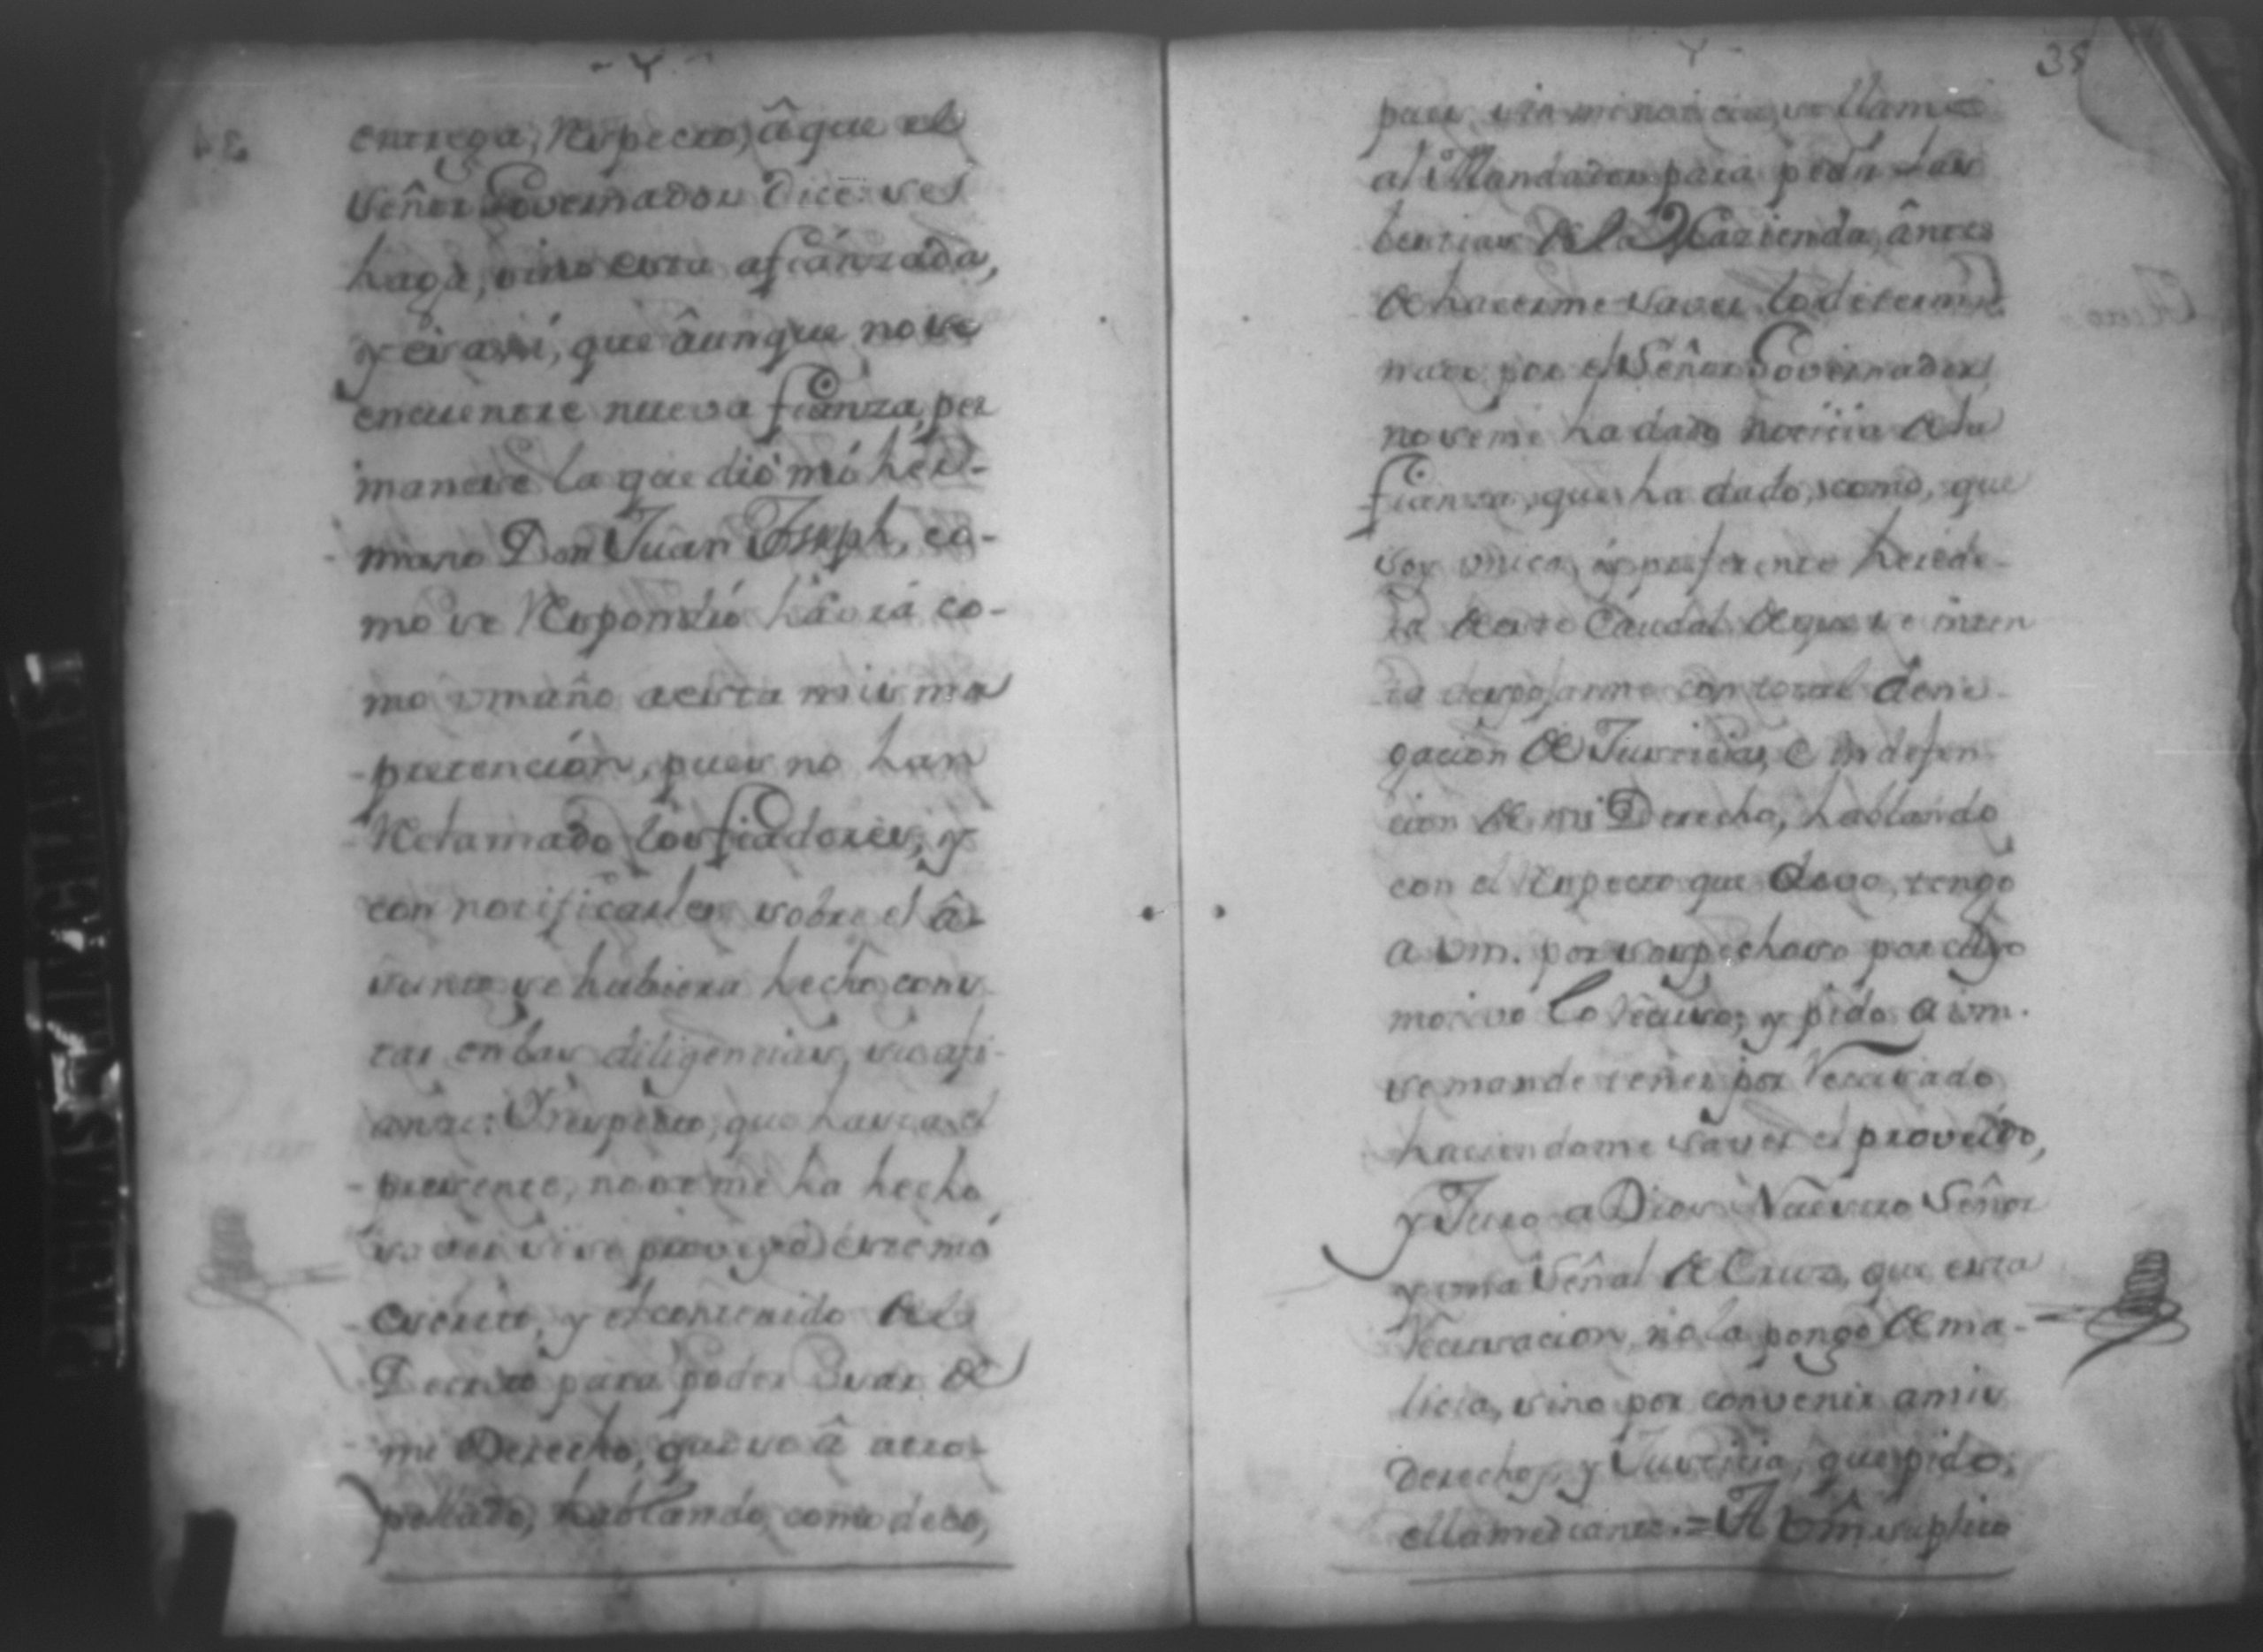 entrega, Respecto, â que el
Señor Governador dice: se
haga, sino esta afianzada,
y es assi, que âunque no se
encuentre nueva fianza, per
manese la que dió mi her-
mano Don Juan Joseph, co-
mo se Respondió havrá co-
mo un año a esta misma
pretención, pues no han
Reclamado los fiadores, y
con notificarles sobre el â-
sunto se hubiera hecho cons
tar en las diligencias, su afi-
anza: Y respecto, que hasta el
presente, no se me ha hecho
saver si se proveyó este mi
escrito, y el contenido del
Decreto para poder Vsar de
mi Derecho, que se â atro-
pellado, hablando como debo,
35
pues, sin mi noticia, se llamó
al Mandador para pedir las
bestias de la Hazienda, ântes
de hacerme saver lo determi
nado por el Señor Governador,
no se me ha dado noticia de la
fianza, que ha dado, como, que
soy vnica, y preferente herede-
ra de este Caudal de que se inten
ta despojarme con total dene-
gación de Justicia, e indefen-
cion de mi Derecho, hablando
con el respecto que devo, tengo
a vm. por sospechoso por cuyo
motivo lo recuso; y pido a vm.
se mande tener por Recusado
haciendome saver el proveído,
y Juro a Dios Nuestro Señor
y una Señal de Cruz, que esta
Recusacion, no la pongo de ma-
licia, sino por convenir a mis
derechos, y Justicia, que pido,
ella mediante. = A Vm̂ suplico